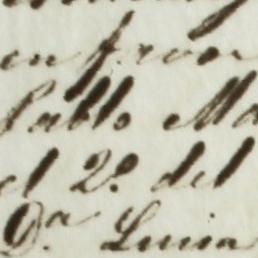 en favor
Pablo Ma
el 2º del
Dª Lucia